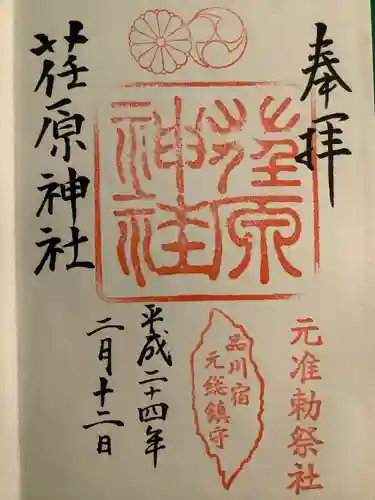 奉拝
荏原神社
元准勅祭社
品川宿
元総鎮守
平成二十四年
二月十二日
荏原神社